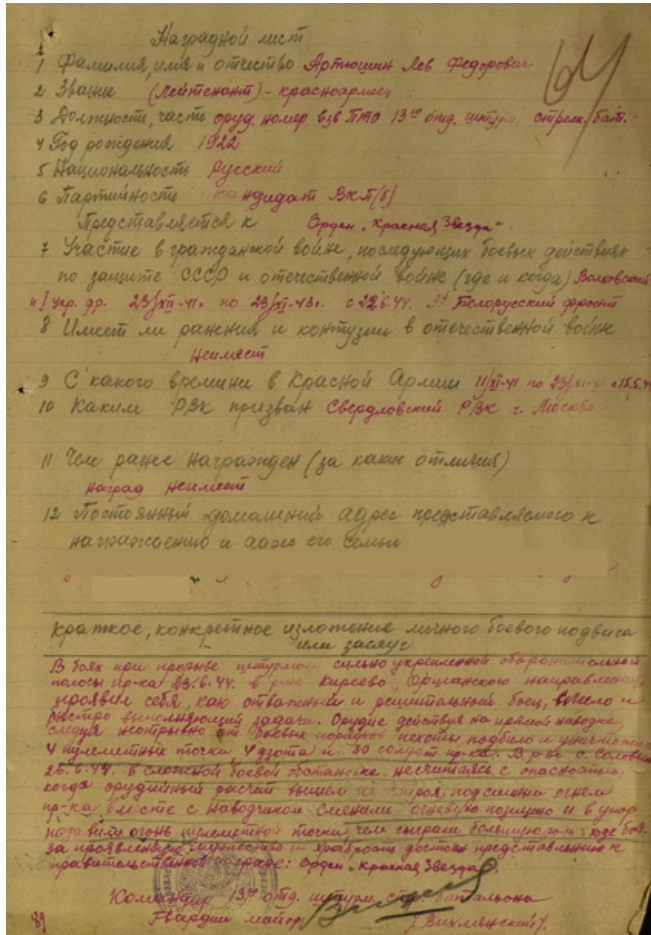 Наградной лист
64
1 Фамилия, имя и отчество Артюшин Лев Федорович
2 Звание (лейтенант) - красноармеец
3 Должность, часть оруд. номер взв ПТО 13го отд. штурм. стрелк. бат.
4 Год рождения 1922
5 Национальность Русский
6 Партийность кандидат ВКП(б)
Представляется к Орден „Красная Звезда“
7 Участие в гражданской войне, последующих боевых действиях
по защите СССР и отечественной войне (где и когда)
23/XII-41г по 23/XI-43г. с 22.6.44. 3й Белорусский фронт
8 Имеет ли ранения и контузии в отечественной войне
Неимеет
9 С какого времени в Красной Армии 11/XI-41 по 23/XI-43 с 15.5.44
10 Каким РВК призван Свердловский РВК г. Москва
11 Чем ранее награжден (за какие отличия)
наград неимеет
12 Постоянный домашний адрес представляемого к
награждению и адрес его семьи
Краткое, конкретное изложение личного боевого подвига
или заслуг
В боях при прорыве штурмом сильно укрепленной оборонительной
полосы пр-ка 23.6.44. в р-не Киреево, Оршанского направления,
проявил себя, как отважный и решительный боец, смело и
быстро выполняющий задачи. Орудие действуя на прямой наводке,
следуя неотрывно от боевых порядков пехоты подбило и уничтожило
4 пулеметных точки, 4 дзота и 30 солдат пр-ка. В р-не с.
26.6.44. в сложной боевой обстановке, несчитаясь с опасностью,
когда орудийный расчет вышел из строя, под сильным огнем
пр-ка вместе с наводчиком сменили огневую позицию и в упор
подавили огонь пулеметной точки, чем сыграли большую роль в ходе боя.
За проявленное мужество и храбрость достоин представления к
правительственной награде: Орден „Красная Звезда“.
Командир 13го отд. штурм. стр. батальона
Гвардии майор
89